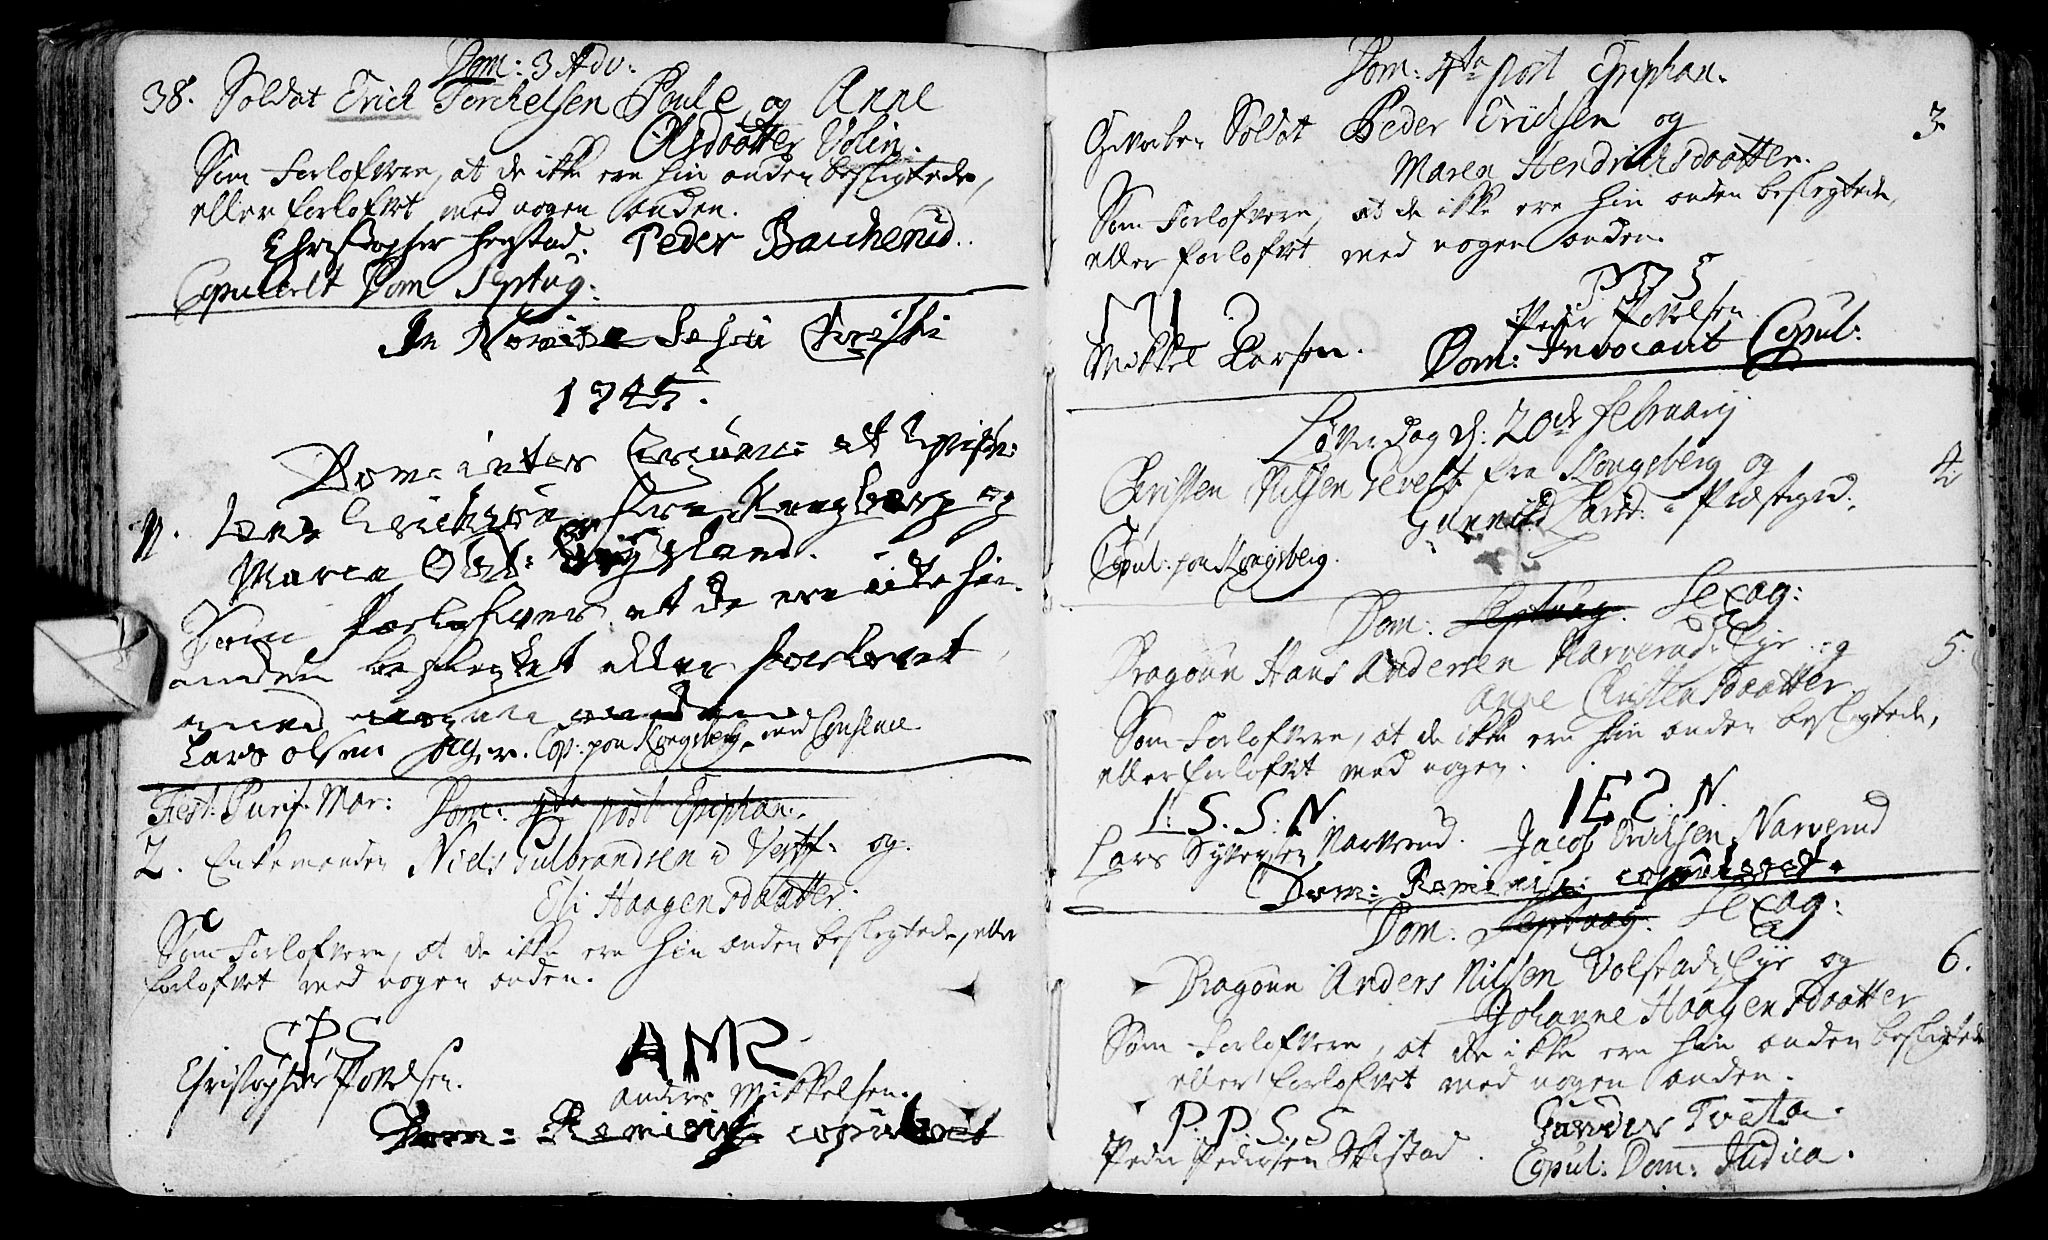 Dom: 3 Adv:
38. Soldat Erich Torchelsen Poule og Anne
Olsdaatter Volin.
Som Forlofvere, at de ikke ere hin anden beslegtede,
eller forlofvet med nogen anden.
Christopher Hogstad. Peder Baccherud.
Copuleret Dom Septug:
In Nomine Jesu Christi
1745.
Dom: inter Circum: et Epiph:
1. Erichsen fra Kongsberg og
Maren
Som Forlofver at de ere icke hin
anden beslegtet eller forlovet
med nogen anden
Lars Olsen Cop: paa Kongsberg med Consence
Fest: Purif: Mar: Dom: 4ta post Epiphan.
2. Enkemanden Niels Gulbrandsen i Vestf: og
Eli Haagensdaatter.
Som Forlofvere, at de ikke ere hin anden beslegtede, eller
forlofvet med nogen anden.
CPS AMS
Christopher Povelsen.
Anders Mikkelsen.
Dom: Reminis: copuleret
Dom: 4ta post Epiphan.
Soldat Peder Erichsen og 3.
Maren Hendrichsdaatter.
Som Forlofvere, at de ikke ere hin anden beslegtede,
eller forlofvet med nogen anden.
PPS
Peder Povelsen
Mikkel Larsen. Dom: Invocavit Copul:
Løverdag d: 20de February
Christen Nilsen Tevelt fra Kongsberg og 4.
Gunnild Præstegrd.
Copul: paa Kongsberg.
Dom: Septuag. Sexag:
Dragoun Hans Andersen Narverud Eye og 5.
Anne Christensdaatter
Som Forlofvere, at de ikke ere hin anden beslegtede,
eller forlofvet med nogen.
L. S. S. N. I E S. N.
Lars Syversen Narverud. Jacob Narverud
Dom: Reminis: copuleret.
Dom. Septuag. Sexag:
Dragoun Anders Nilsen Volstad Eye og 6.
Johanne Haagensdaatter
Som Forlofvere, at de ikke ere hin anden beslegtede
eller forlofvet med nogen anden.
P. P. S. S Tveta.
Peder Pedersen Skistad. Copul: Dom: Judica.